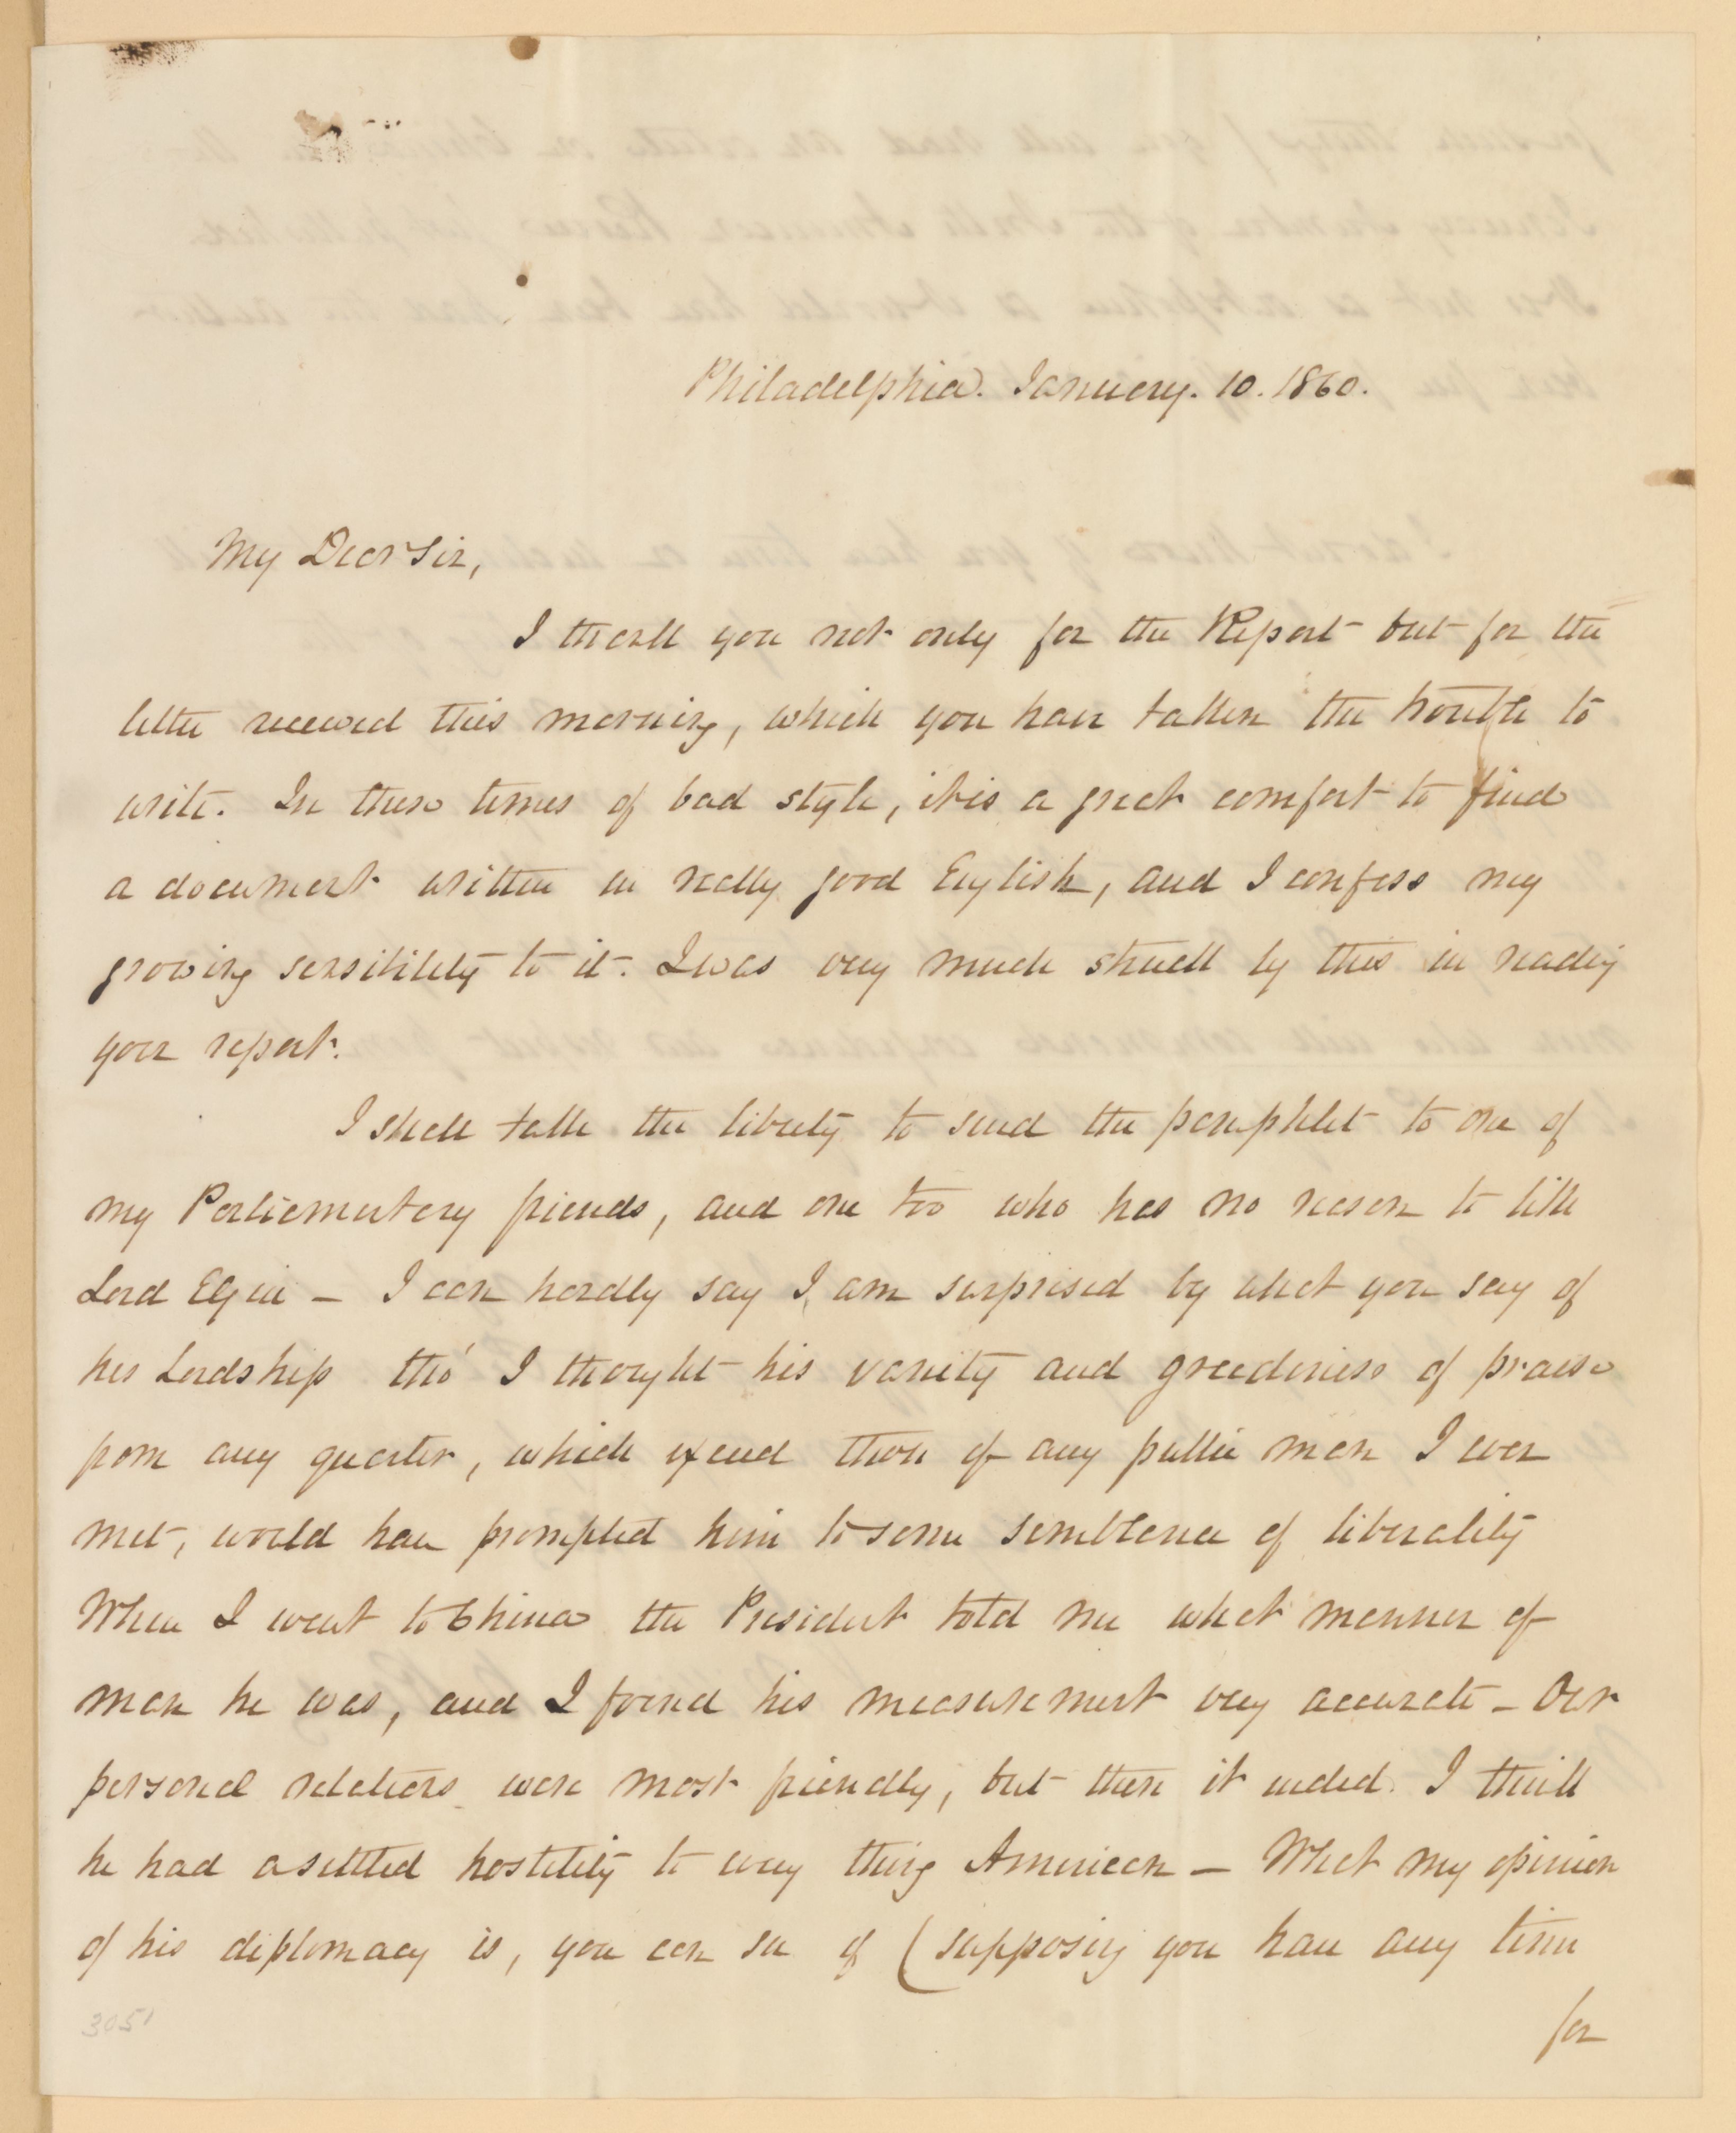 Philadelphia. January. 10. 1860.
My Dear Sir,
I thank you not only for the Report but for the
letter received this morning, which you have taken the trouble to
write. In these times of bad style, it is a great comfort to find
a document written in really good English, and I confess my
growing sensibility to it. I was very much struck by this in reading
your report.
I shall take the liberty to send the pamphlet to one of
my Parliamentary friends, and one too who has no reason to like
Lord Elgin — I can hardly say I am surprised by what you say of
his Lordship tho' I thought his vanity and greediness of praise
from any quarter, which exceed those of any public man I ever
met, would have prompted him to some semblance of liberality
When I went to China the President told me what manner of
man he was, and I found his measurement very accurate — Our
personal relations were most friendly, but there it ended. I think
he had a settled hostility to every thing American — What my opinion
of his diplomacy is, you can see if (supposing you have any time
for
3051